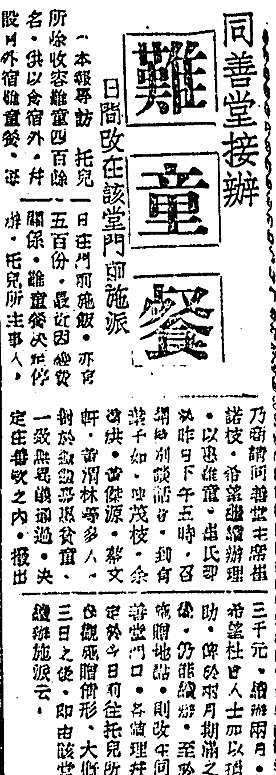 同善堂接辦
難童餐
日間改在該堂門前施派
（本報專訪）托兒
所除收容難童四百餘
名，供以食宿外，幷
設有外宿難童餐，每
日在門前施飯，亦有
五百份，最近因經費
關係，難童餐決定停
辦，托兒所主事人，
乃商請同善堂主席崔
諾枝，希望繼續辦理
，以惠難童，崔氏即
於昨日下午五時，召
談話會，到有
葉子如，沈茂枝，余
洪，黃傑源，蔡文
軒，黃渭林等多人，
對於貧童，
一致無異議通過，決
定在善款之內，撥出
三千元，續辦兩月，
希望社會人士加以
助，俾於兩月期滿之
後，仍能續辦，至於
施贈地點，則改在同
善堂門口，各值理幷
定於今日前往托兒所
參觀施贈情形，大約
三日之後，即由該堂
續辦施派云。